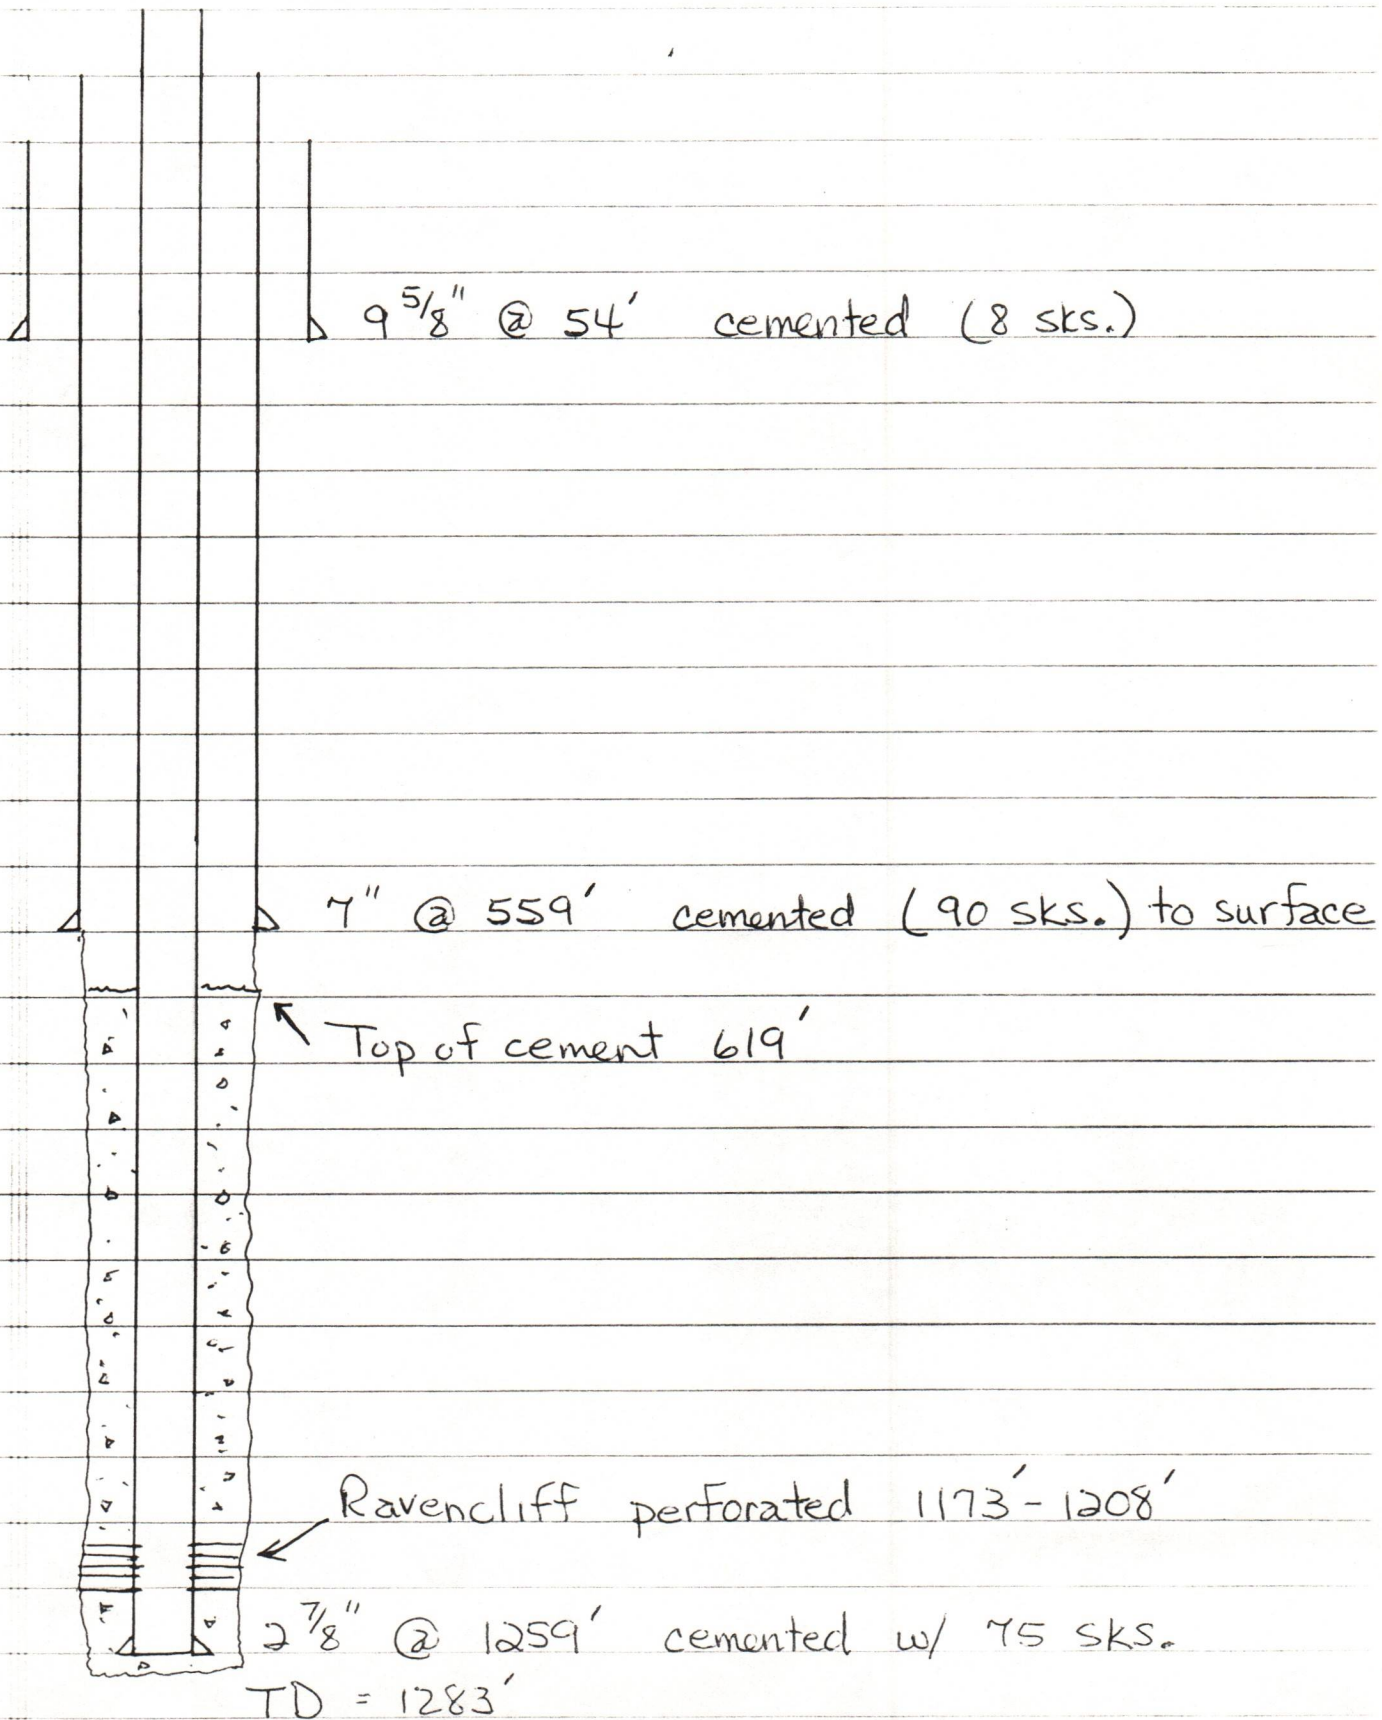 9 5/8" @ 54' cemented (8 sks.)
7" @ 559' cemented (90 sks.) to surface
Top of cement 619'
Ravencliff perforated 1173'-1208'
2 7/8" @ 1259' cemented w/ 75 sks.
TD = 1283'